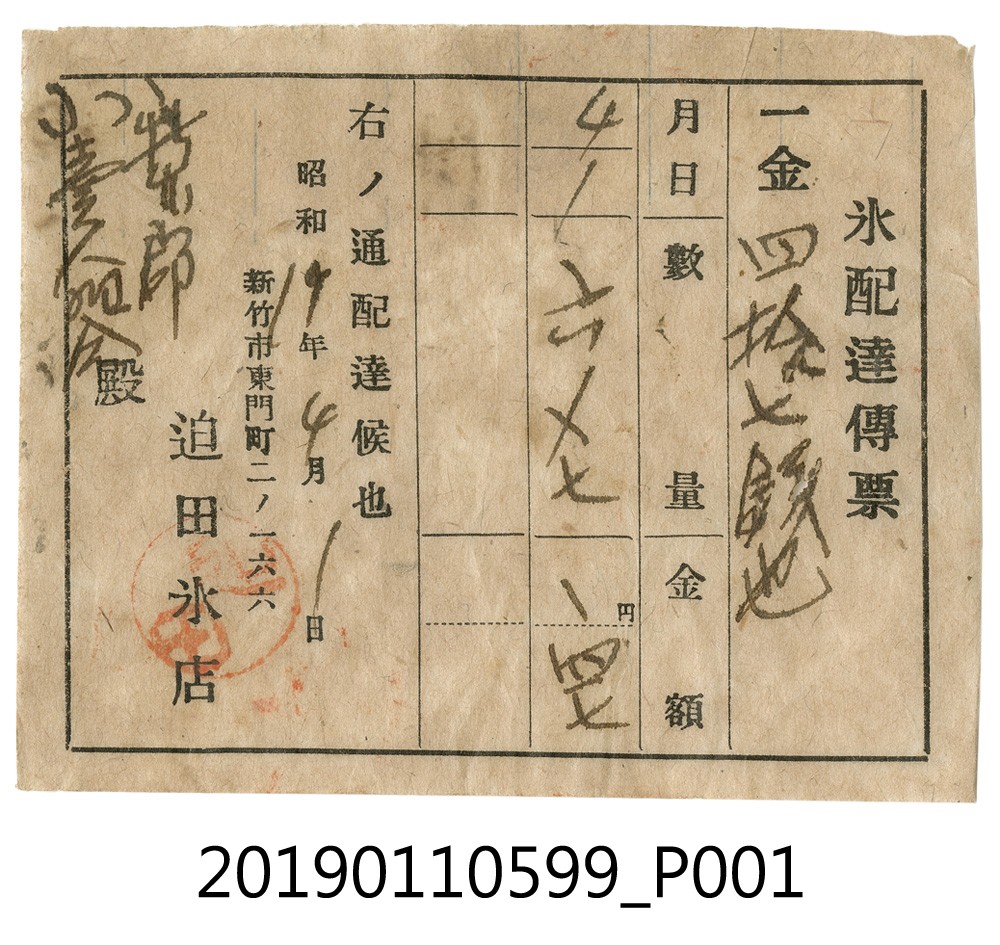 氷配達傳票
一金 四拾七銭也
月日 數量 金額
4/1 六 円 四七
右ノ通配達候也
昭和19年4月1日
新竹市東門町二ノ一六六
迫田氷店
殿
20190110599_P001